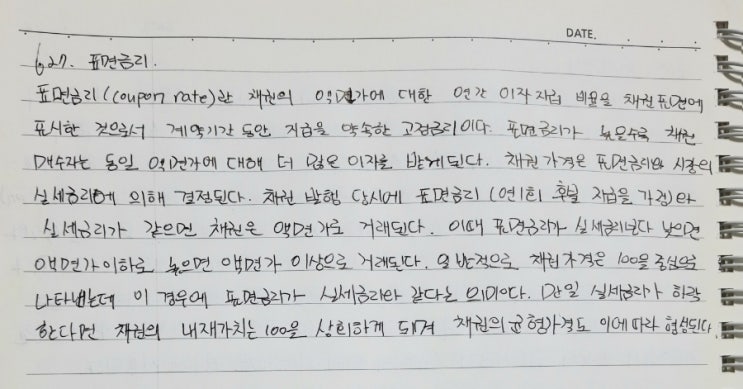 DATE.
627. 표면금리.
표면금리(coupon rate)란 채권의 액면가에 대한 연간 이자지급 비율을 채권표면에
표시한 것으로서 계약기간 동안 지급을 약속한 고정금리이다. 표면금리가 높을수록 채권
매수자는 동일 액면가에 대해 더 많은 이자를 받게된다. 채권가격은 표면금리와 시장의
실세금리에 의해 결정된다. 채권 발행 당시에 표면금리(연1회 후불 지급을 가정)와
실세금리가 같으면 채권은 액면가로 거래된다. 이때 표면금리가 실세금리보다 낮으면
액면가이하로 높으면 액면가 이상으로 거래된다. 일반적으로 채권가격은 100을 중심으로
나타내는데 이 경우에 표면금리가 실세금리와 같다는 의미이다. 만일 실세금리가 하락
한다면 채권의 내재가치는 100을 상회하게 되며 채권의 균형가격도 이에 따라 형성된다.